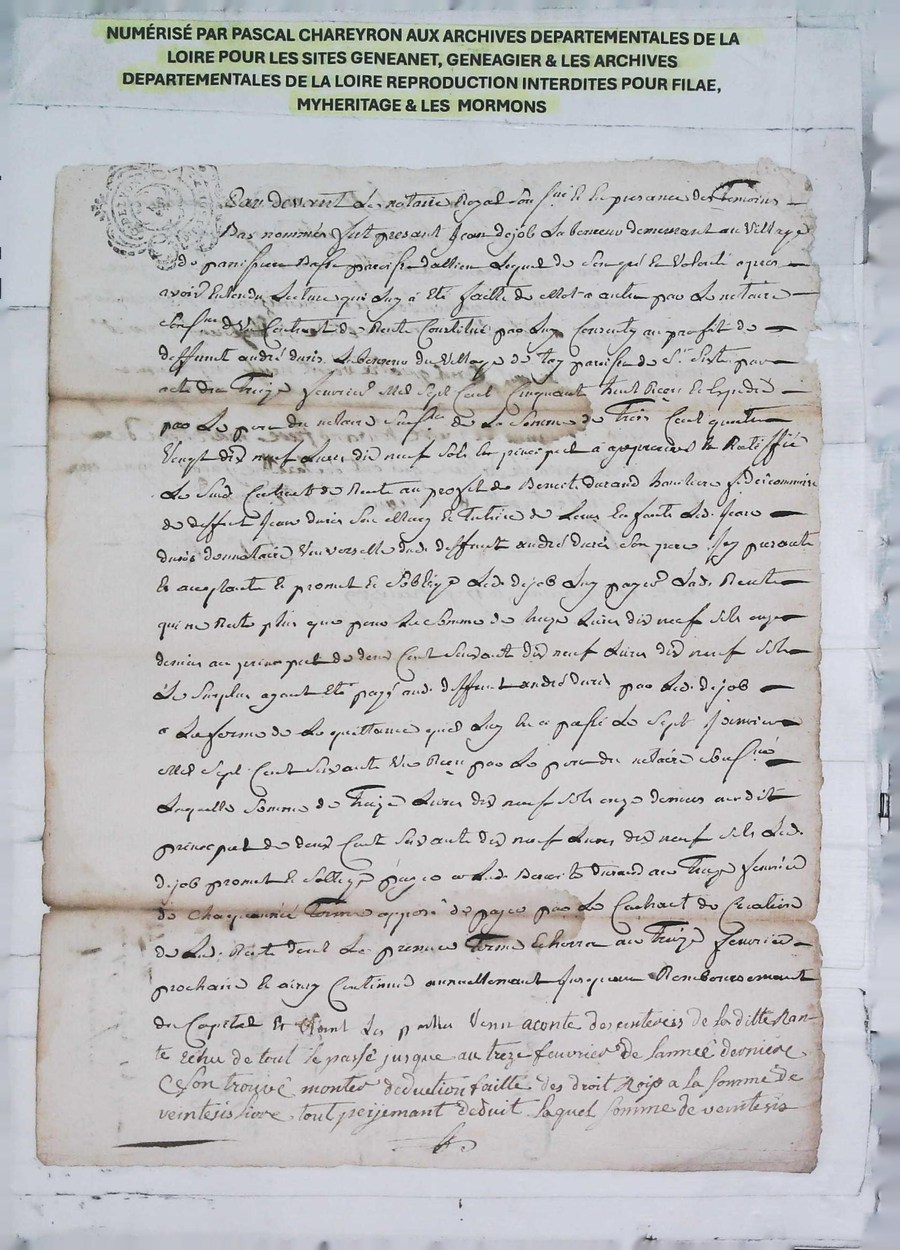 NUMÉRISÉ PAR PASCAL CHAREYRON AUX ARCHIVES DEPARTEMENTALES DE LA
LOIRE POUR LES SITES GENEANET, GENEAGIER & LES ARCHIVES
DEPARTEMENTALES DE LA LOIRE REPRODUCTION INTERDITES POUR FILAE,
MYHERITAGE & LES MORMONS
Par devant Le notaire Royal En la presance des Temoins
Bas nommés fut present Jean dejob Laboureur demeurant au Village
de panissiere Basse paroisse Lequel de Son gré Et Volonté apres
avoir Entendu Lecture qui Luy a Eté faitte de Mot a autre par Le notaire
du Contract de Rente Constitué par Luy Consenty au profit de
deffunt andré duris Laboureur du Village de paroisse de St Sixte par
acte du Treize fevrier Mil Sept Cent Cinquante huit Receu Et Expedié
par Le pere du notaire de La Somme de Trois Cent quatre
Vingt dix neuf Livres dix neuf Sols En principal a approuvé Et Ratiffié
Le Susd. Contract de Rente au profit de Benoite durand heritiere fideicommise
de deffunt Jean duris Son Mary Et Tutrice de Leurs Enfants Led. Jean
duris donnataire Universelle dud. deffunt andré duris Son pere Icy presante
Et acceptante Et promet Et S'oblige Led. dejob Luy payer Lad. Rente
qui ne Reste plus que pour La Somme de treize Livres dix neuf Sols onze
deniers au principal de deux Cent Soixante dix neuf Livres dix neuf Sols
Le Surplus ayant Eté payé aud. deffunt andré duris par Led. dejob
a La forme de La quittance quil Luy En a passé Le Sept Janvier
Mil Sept Cent Soixante Un Receu par Le pere du notaire
Laquelle Somme de Treize Livres dix neuf Sols onze deniers audit
principal de deux Cent Soixante dix neuf Livres dix neuf Sols Led.
dejob promet Et S'oblige payer a Lad. Benoite durand au Treize fevrier
de Chaque année Terme apposé de payer par Le Contract de Création
de Lad. Rente dont Le premier Terme Echerra au Treize fevrier
prochain Et ainsy Continuer annuellement Jusqu'au Remboursement
du Capital Et Etant Les parties Venu aconte des interés de la ditte Ran-
te Echu de tout le passé jusque au treze feuvrier de Lanneé derniere
Cest trouvé monter deduction faitte des droit Roje a la Somme de
veintesis Livre tout peijemant deduit laquel somme de veintesis